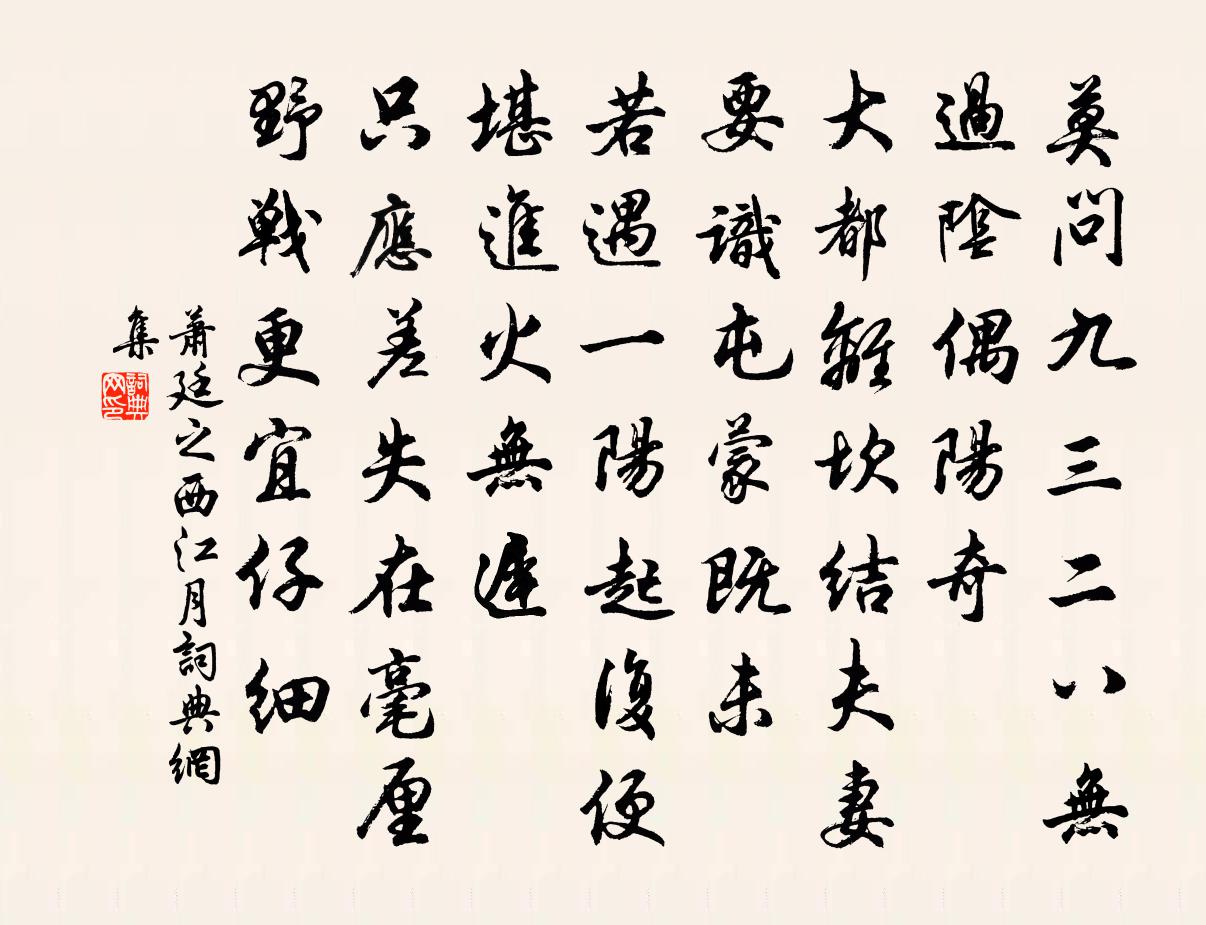 莫問九三二八無
過陰偶陽奇
大都離坎結夫妻
要識屯蒙既未
若遇一陽起復便
堪進火無遲
只應差失在毫厘
野戰更宜仔細
蕭廷之西江月詞典網
集
詞典網印